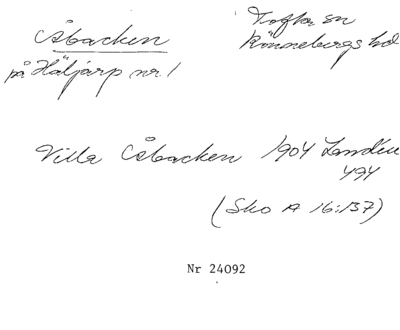 Åbacken
Tofta sn
på Häljarp nr. 1
Rönnebergs hd
Villa Åbacken 1904
494
(Sko A 16:137)
Nr 24092